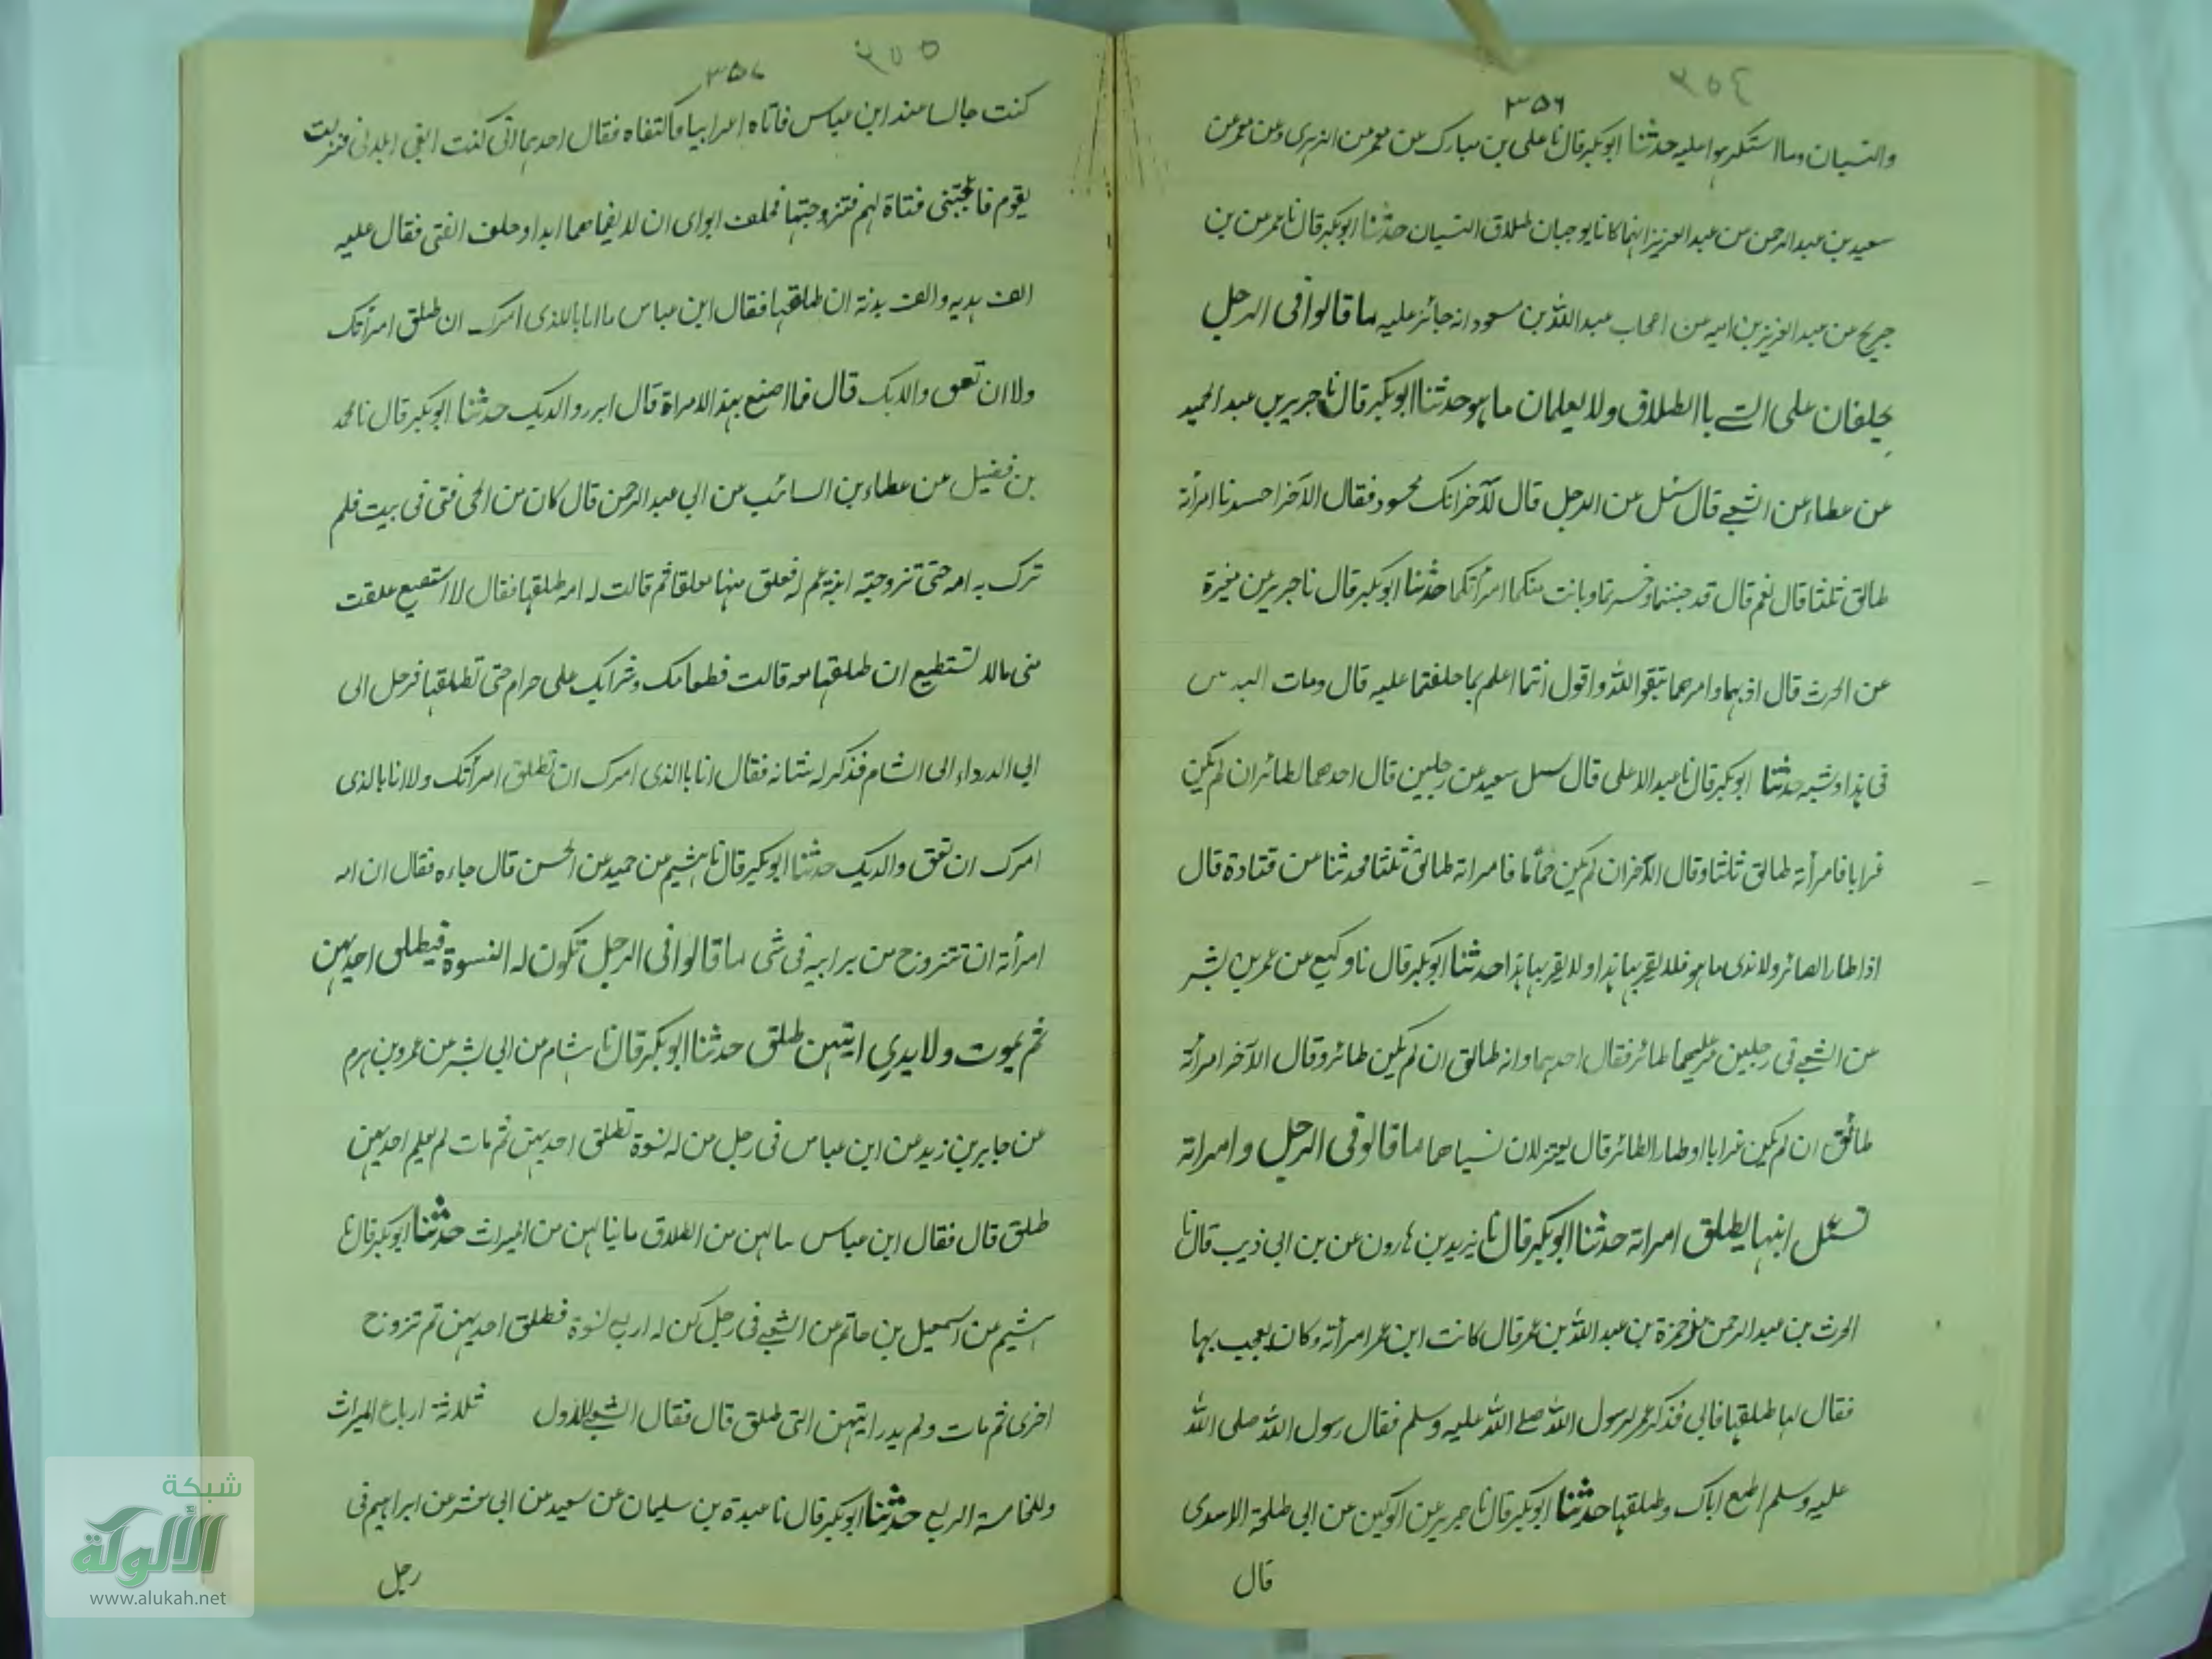 ٣٥٤
٣٥٦
والنسيان وما استكرهوا عليه حدثنا ابوبكر قال نا على بن مبارك عن معمر عن الزهرى وعن معمر عن
سعيد بن عبد الرحمن عن عبد العزيز انهما كانا يوجبان طلاق النسيان حدثنا ابوبكر قال نا عمر عن بن
جريح عن عبد العزيز بن اميه عن اصحاب عبد الله بن مسعود انه جائز عليه ما قالوا فى الرجل
يحلفان على الشے باالطلاق ولا يعلمان ما هو حدثنا ابوبكر قال نا جرير بن عبد الحميد
عن عطاء عن الشعبے قال سئل عن الرجل قال لآخر انك لمحسود فقال الآخر احسدنا امرأته
طالق ثلثا قال نعم قال قد خبتما وخسرتما وبانت منكما امرأتكما حدثنا ابوبكر قال نا جرير عن مغيرة
عن الحرث قال اذهبا وامرهما بتقوا الله واقول انتما اعلم بما حلفتما عليه قال ومات
فى هذا وشبه حدثنا ابوبكر قال نا عبد الاعلى قال سئل سعيد عن رجلين قال احدهما لطائر ان لم يكن
غرابا فامرأته طالق ثلثا وقال الآخر ان لم يكن حماما فامراته طالق ثلثا فحدثنا عن قتادة قال
اذا طار الطائر ولا ندى ما هو فلا يقربها هذا ولا يقربها هذا حدثنا ابوبكر قال نا وكيع عن عمر بن بشر
عن الشعبے فى رجلين مر عليهما طائر فقال احدهما وانه طالق ان لم يكن طائر وقال الآخر امرأته
طالق ان لم يكن غرابا او طار الطائر قال يعتزلان نساهما ما قالوا فى الرجل وامراته
تسئل ابنها يطلق امراته حدثنا ابوبكر قال نا يزيد بن هارون عن بن ابى ذيب قال نا
الحرث بن عبد الرحمن عن حمزة بن عبد الله بن عمر قال كانت ابن عمر امرأته وكان يعجب بها
فقال لها طلقها فابى فذكر عمر لرسول الله صلے الله عليه وسلم فقال رسول الله صلى الله
عليه وسلم اطع اباك وطلقها حدثنا ابوبكر قال نا جرير عن الركين عن ابى طلحة الاسدى
قال
٣٥٥
٣٥٧
كنت جالسا عند ابن عباس فاتاه اعرابيا فاكتنفاه فقال احدهما انى كنت ابغى ابلا لى فنزلت
بقوم فاعجبتنى فتاة لهم فتزوجتها فحلف ابواى ان لا يضماهما ابدا وحلف الفتى فقال عليه
الف هديه والف بدنة ان طلقها فقال ابن عباس ما انا باللذى امرك ان طلق امرأتك
ولا ان تعق والديك قال فما اصنع بهذ الامراة قال ابرر والديك حدثنا ابوبكر قال نا محمد
بن فضيل عن عطاء بن السائب عن ابى عبد الرحمن قال كان من الحى فتى فى بيت فلم
ترك به امه حتى تزوجته ابنة عم له فعلق منها معلقا ثم قالت له امه طلقها فقال لا استطيع علقت
منى مالا تستطيع ان طلقها معه قالت فطعامك وشرابك على حرام حتى تطلقها فرحل الى
ابى الدرداء الى الشام فذكر له شانه فقال انا باالذى امرك ان تطلق امرأتك ولا انا بالذى
امرك ان تعق والديك حدثنا ابوبكر قال نا هشيم عن حميد عن الحسن قال جاءه فقال ان امه
امرأته ان تتزوج من برابيه فى شى ما قالوا فى الرجل تكون له النسوة فيطلق احدٰهن
ثم يموت ولا يدرى ايتهن طلق حدثنا ابوبكر قال نا هشام عن ابى بشر عن عمرو بن هرم
عن جابر بن زيد عن ابن عباس فى رجل من له نسوة تطلق احديهن ثم مات لم يعلم احديهن
طلق قال فقال ابن عباس ما لهن من الطلاق ما ينالهن من الميراث حدثنا ابوبكر قال نا
هشيم عن اسمعيل بن حاتم عن الشعبے فى رجل كن له اربع نسوة فطلق احديهن ثم تزوج
اخرى ثم مات ولم يدر ايتهن التى طلق قال فقال الشعبے للاول ثلاثة ارباع الميراث
وللخامسة الربع حدثنا ابوبكر قال نا عبدة بن سليمان عن سعيد عن ابى معشر عن ابراهيم فى
رجل
شبكة
الألوكة
www.alukah.net